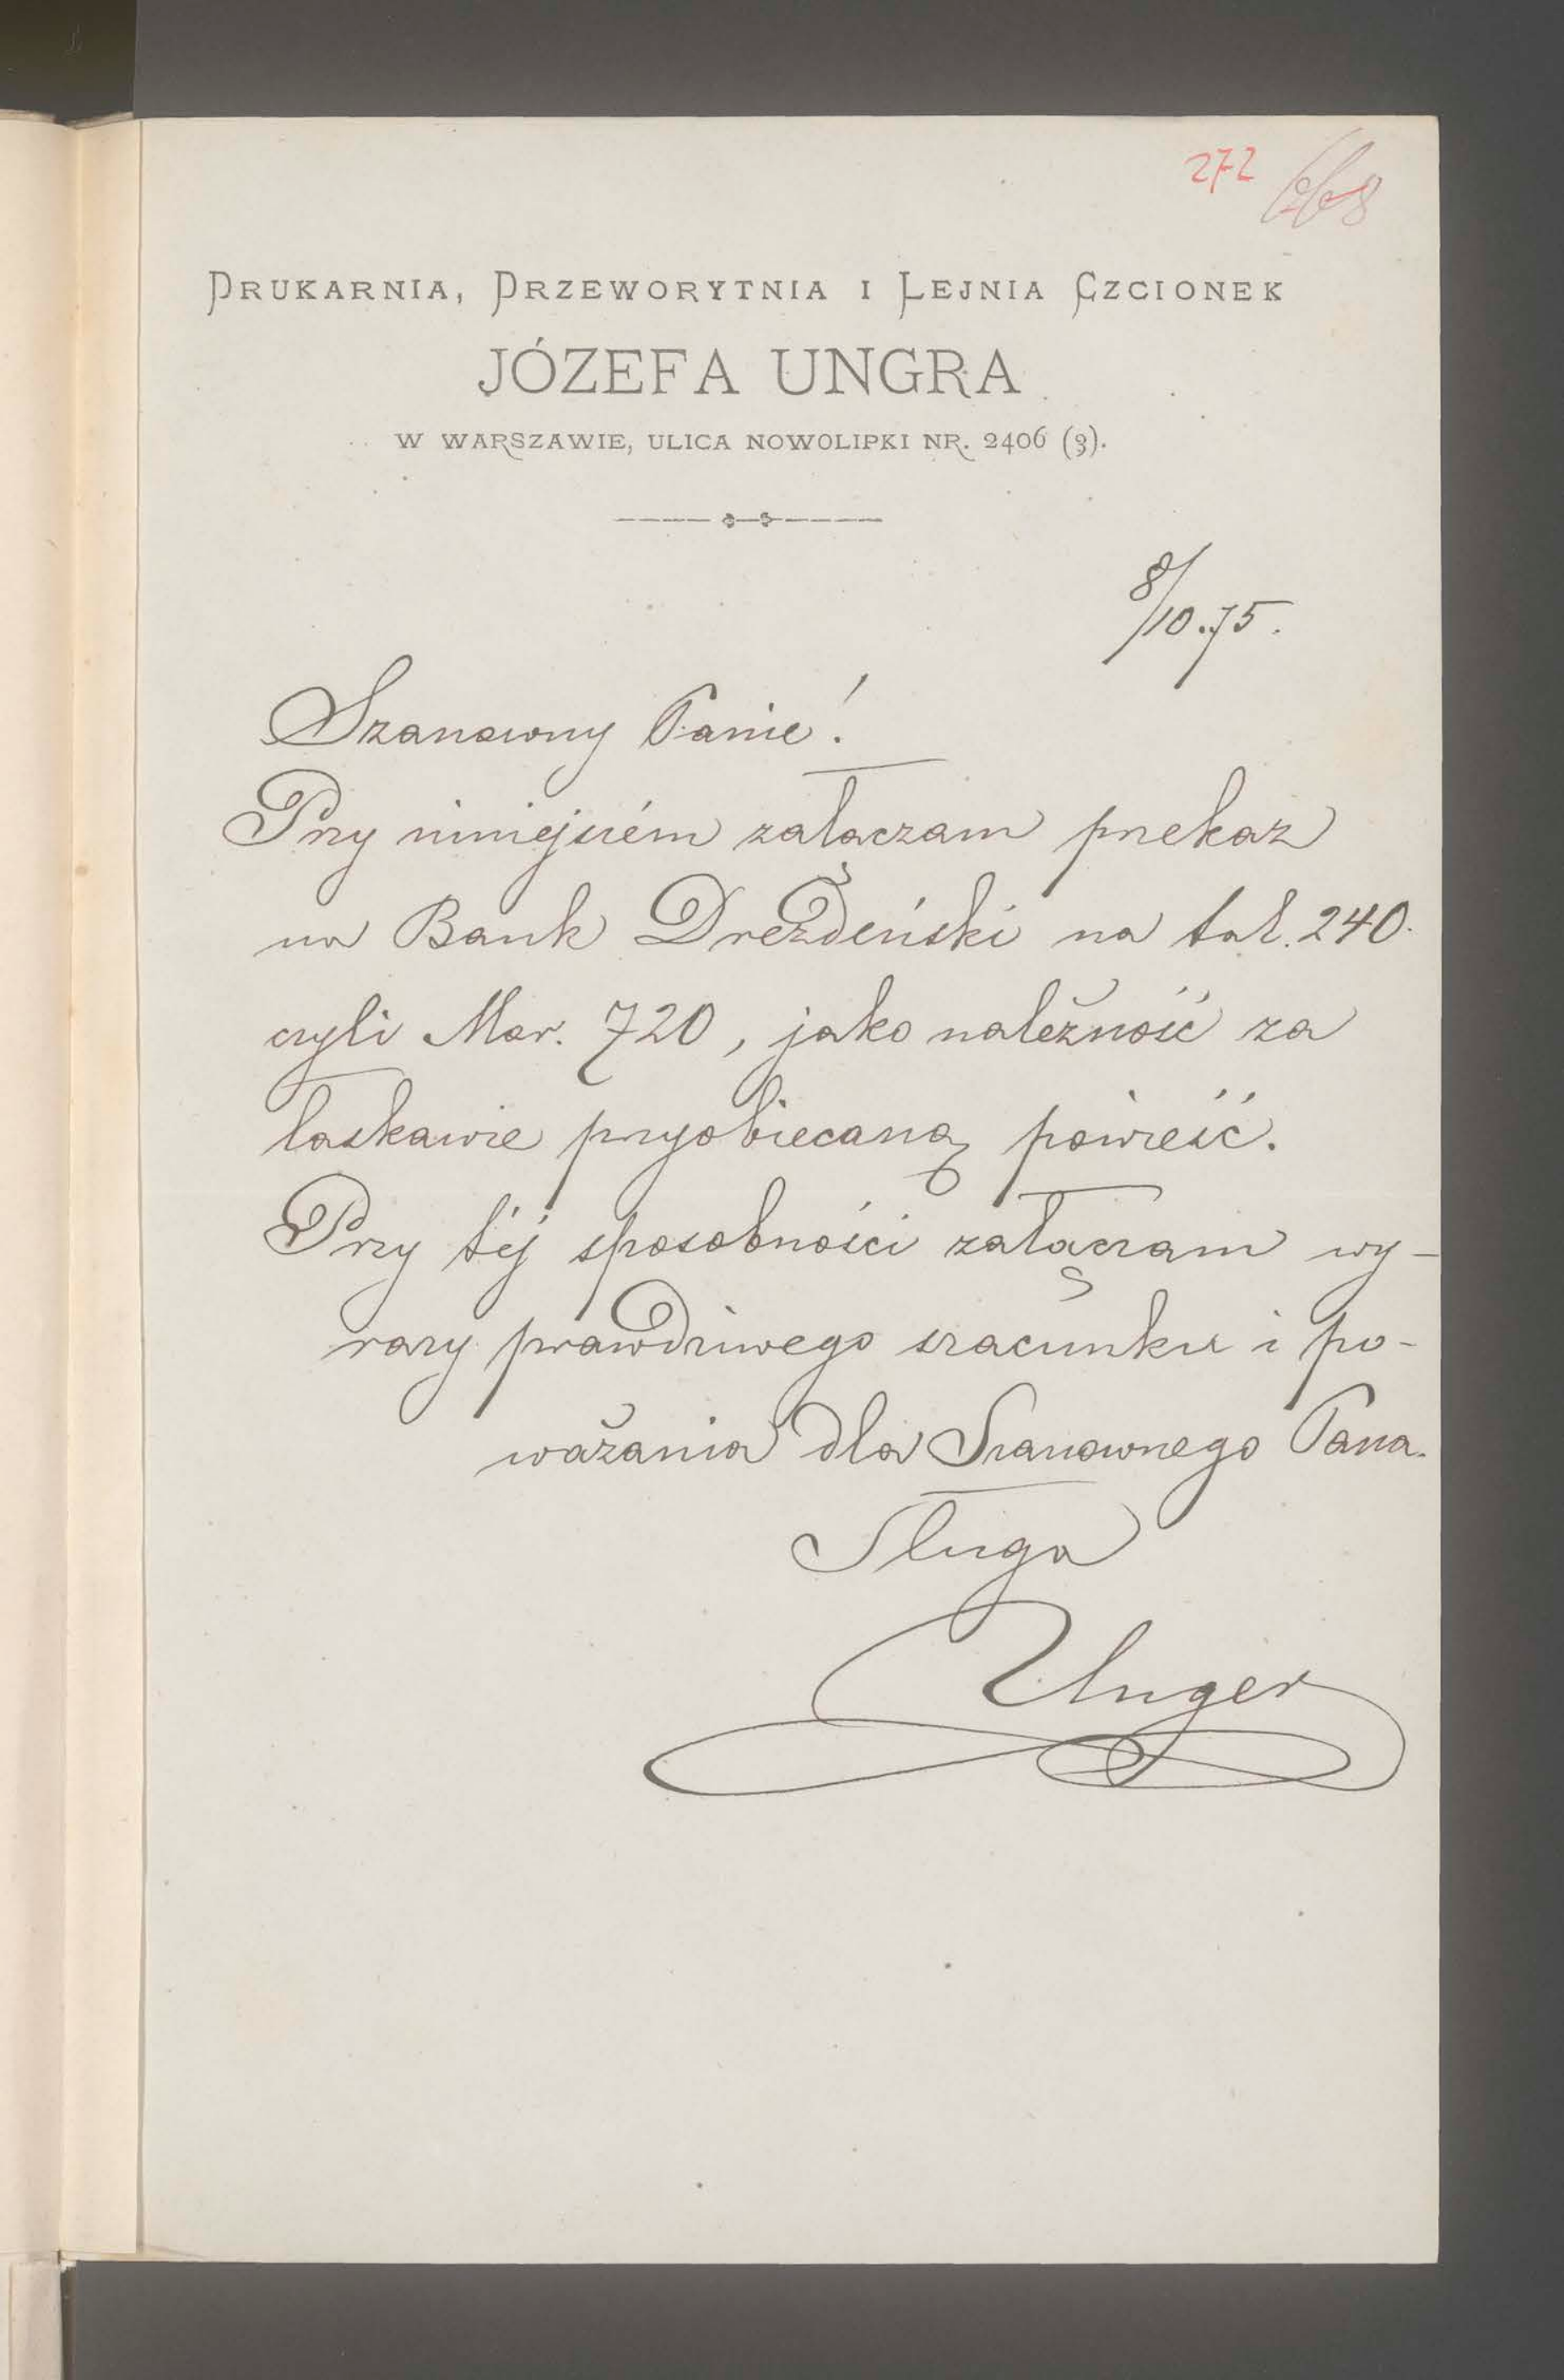 272 268
DRUKARNIA, DRZEWORYTNIA I LEJNIA CZCIONEK
JÓZEFA UNGRA
W WARSZAWIE, ULICA NOWOLIPKI NR. 2406 (3).
8/10.75.
Szanowny Panie!
Przy niniejszém załaczam przekaz
na Bank Drezdeński na tal. 240.
czyli Mar. 720, jako należność za
łaskawie przyobiecaną powieść.
Przy téj sposobności załączam wy-
razy prawdziwego szacunku i po-
ważania dla Szanownego Pana.
Sługa
Unger